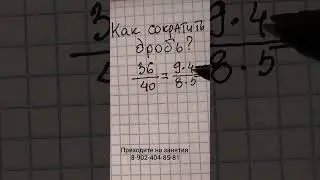 Как сократить
дробь?
36/40 = 9·4/8·5
Приходите на занятия
8-902-404-85-81